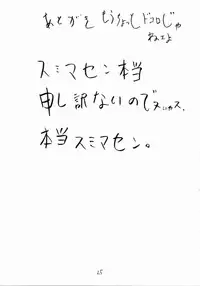 あとがき もうちょっとドコロじゃ
ねェよ
スミマセン本当
申し訳ないのでヌッカス.
本当スミマセン。